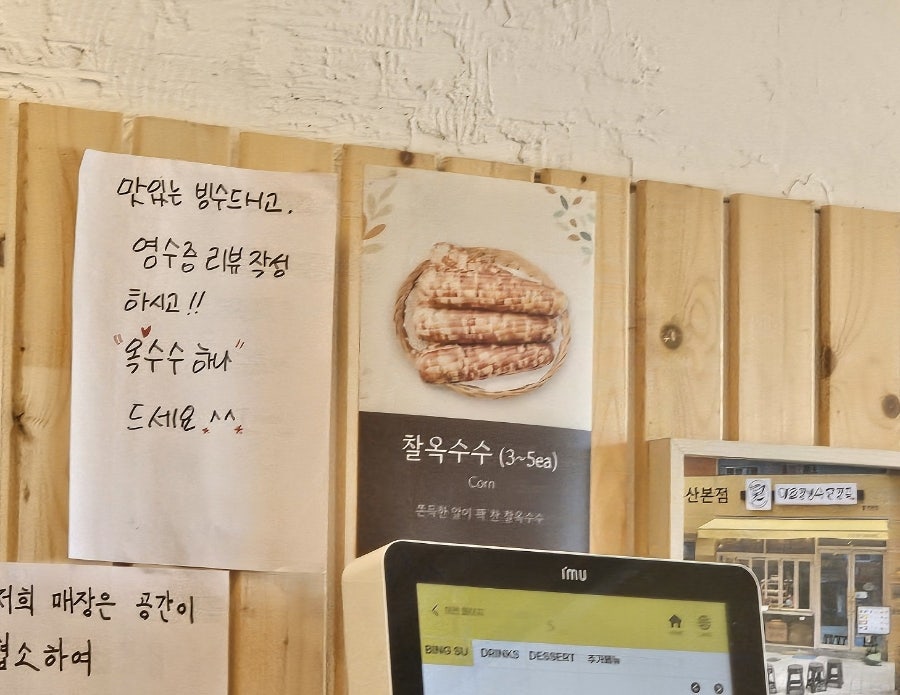 맛있는 빙수드시고,
영수증 리뷰 작성
하시고!!
"옥수수 하나"
드세요 ^^
찰옥수수 (3~5ea)
Corn
쫀득한 알이 꽉 찬 찰옥수수
저희 매장은 공간이
협소하여
imu
BING SU DRINKS DESSERT 추가메뉴
산본점